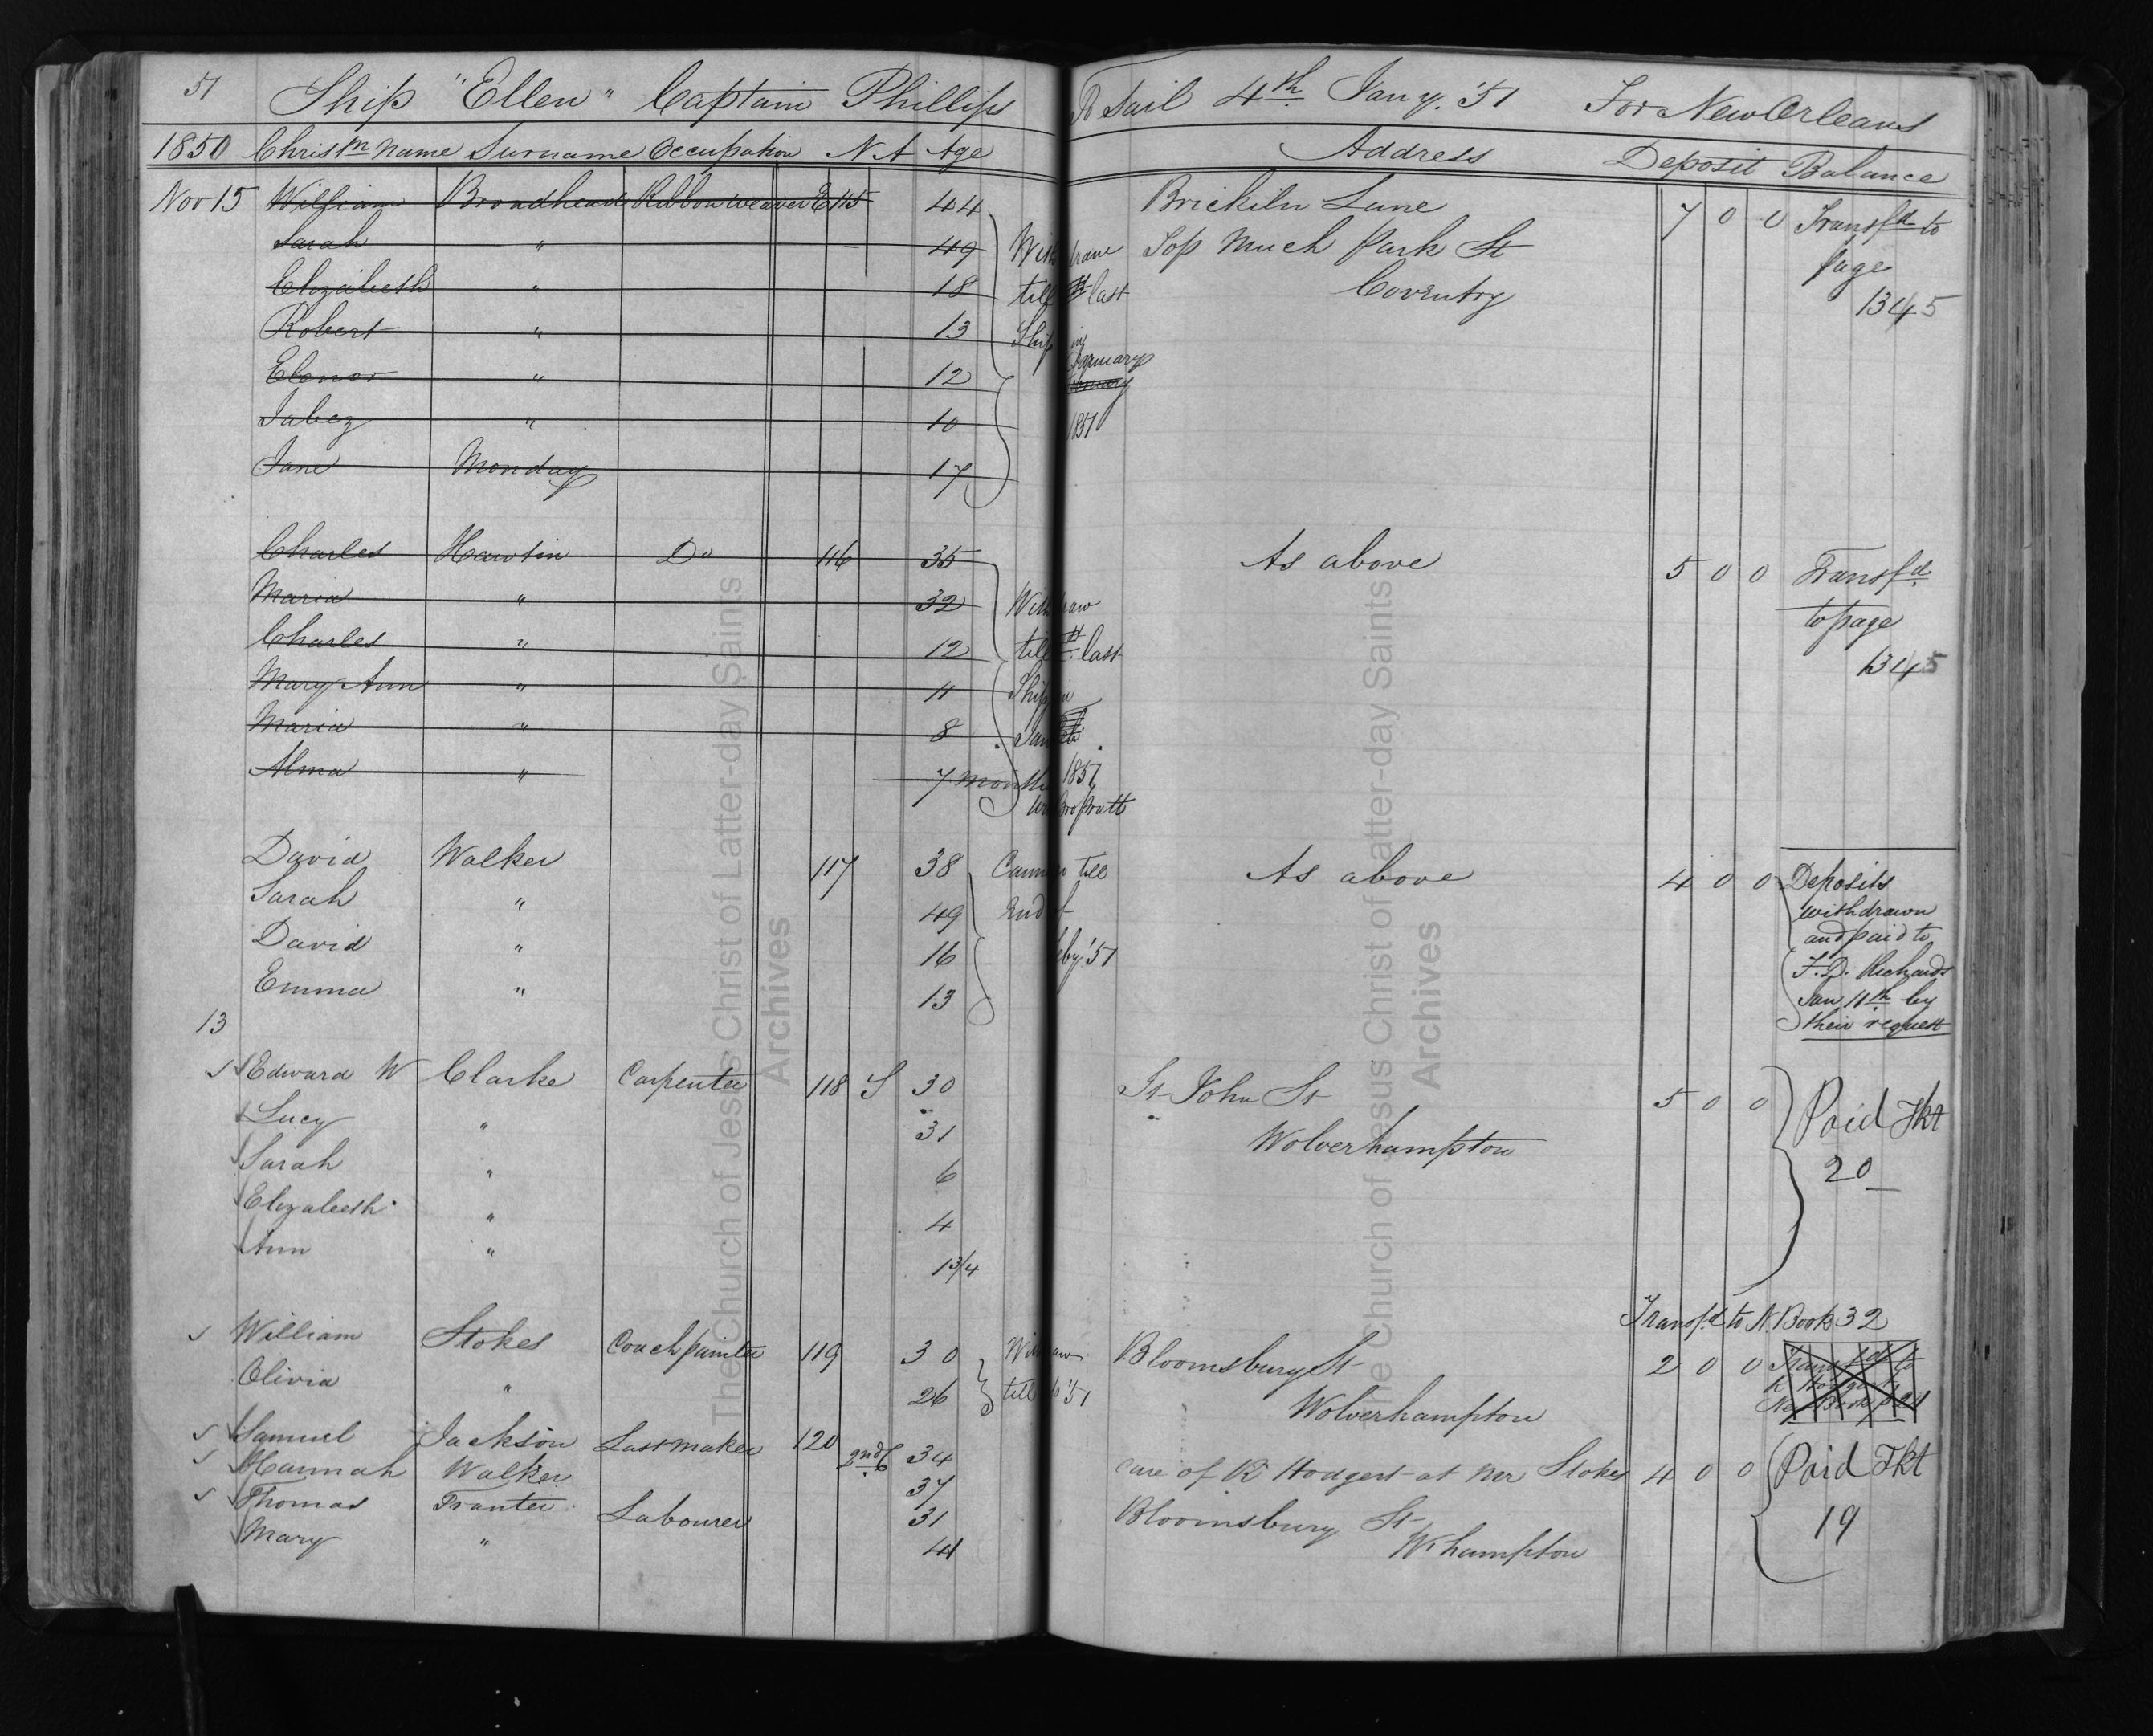 51 Ship "Ellen" Captain Phillips To Sail 4th Jany. '51 For New Orleans
1850 Christn Name Surname Occupation N A Age Address Deposit Balance
Nov 15 William Broadhead Ribbon weaver 115 44 Brickiln Lane 7 0 0 Transfd to
Sarah " 49 Withdraw Top Much Park St page
Elizabeth " 18 till last Coventry 1345
Robert " 13 Ship in
Elenor " 12 January
Jabez " 10 1851
Jane Monday 17
Charles Hawtin Do 116 35 As above 5 0 0 Transfd
Maria " 32 Withdraw to page
Charles " 12 till last 1345
Mary Ann " 11 Ship in
Maria " 8 Jan
Alma " 7 months 1851
Bro Pratt
David Walker 117 38 Cannot go till As above 4 0 0 Deposits
Sarah " 49 End of withdrawn
David " 16 Feby '51 and paid to
Emma " 13 F. D. Richards
Jan 11th by
their request
13
Edward W Clarke Carpenter 118 S 30 St John St 5 0 0 Paid Tkt
Lucy " 31 Wolverhampton 20
Sarah " 6
Elizabeth " 4
Ann " 1 3/4
Transfd to N. Book 32
William Stokes Coach painter 119 30 Withdraw Bloomsbury St 2 0 0 Transfd to
Olivia " 26 till '51 Wolverhampton
Samuel Jackson Lastmaker 120 2nd C 34 care of R Hodgert at Mr Stokes 4 0 0 Paid Tkt
Hannah Walker 37 Bloomsbury St 19
Thomas Tranter Labourer 31 W.hampton
Mary " 41
The Church of Jesus Christ of Latter-day Saints
Archives
The Church of Jesus Christ of Latter-day Saints
Archives